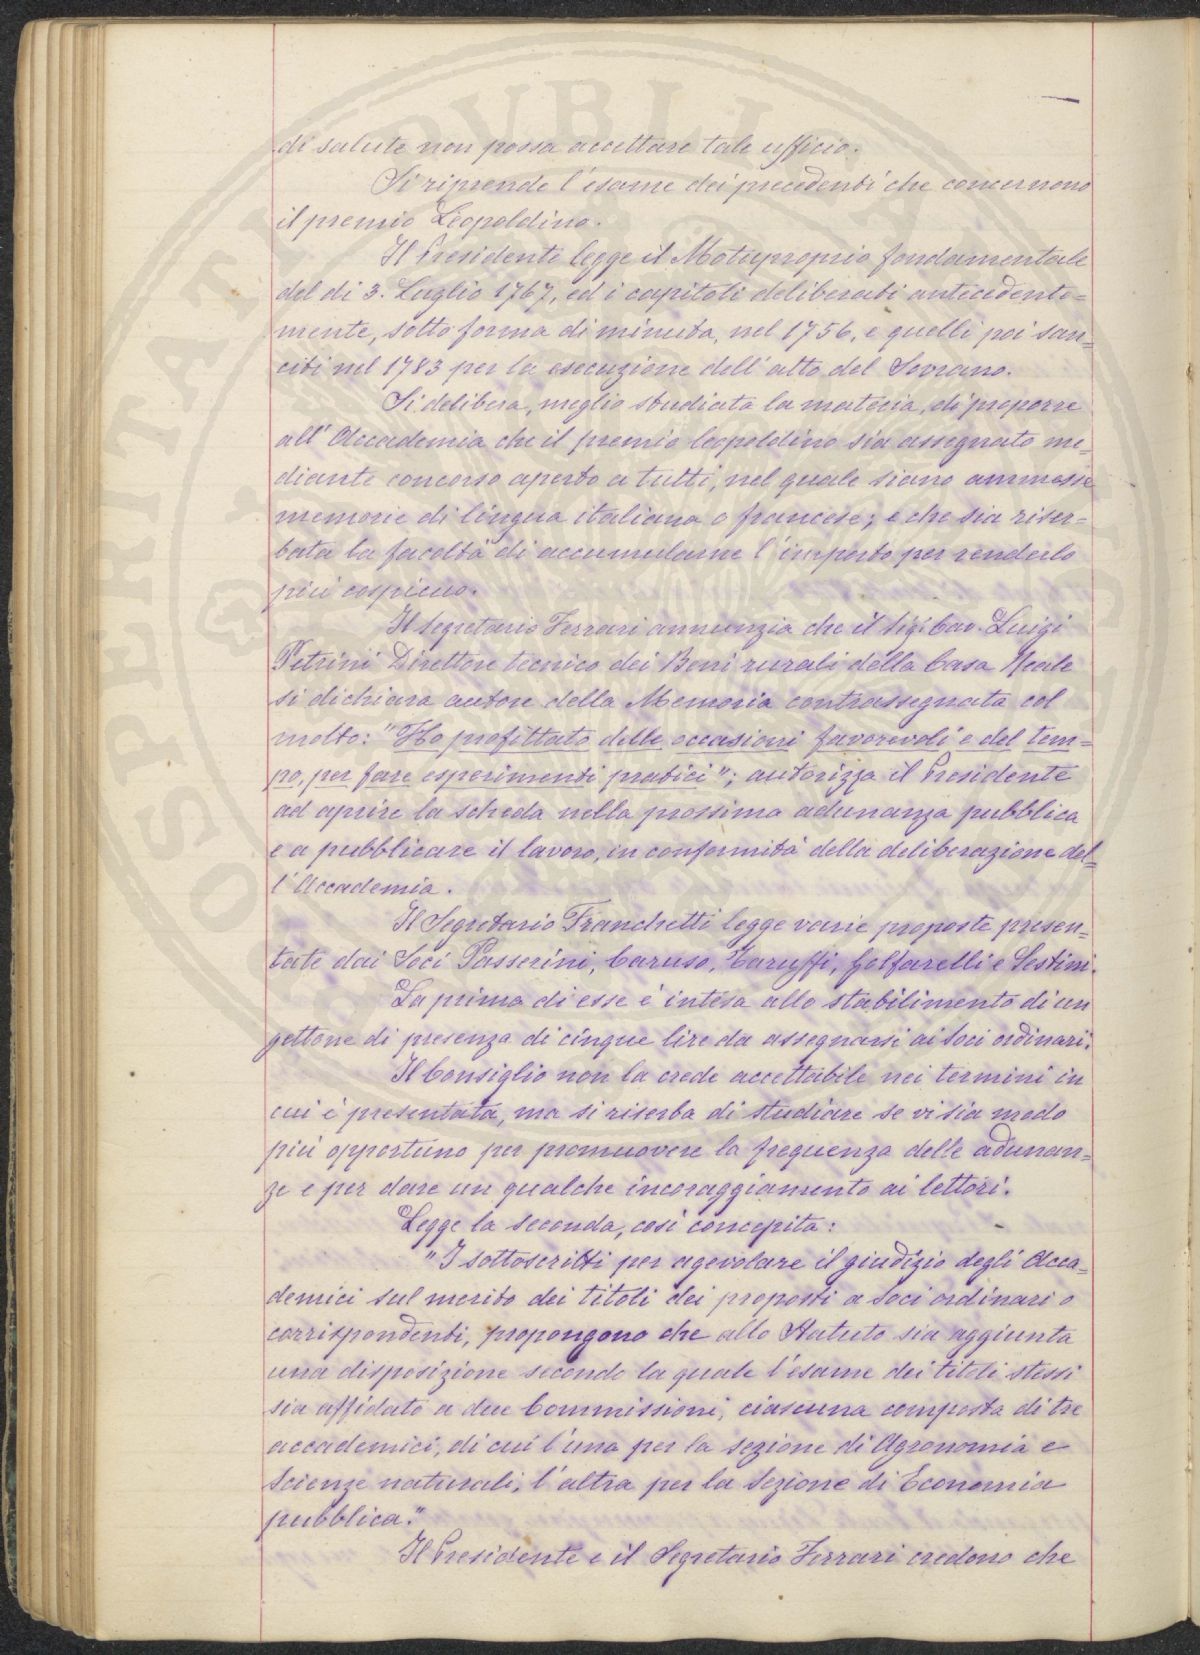 di salute non possa accettare tale ufficio.
Si riprende l'esame dei precedenti che concernono
il premio Leopoldino.
Il Presidente legge il Motuproprio fondamentale
del di 3. Luglio 1767, ed i capitoli deliberati anticedente=
mente, sotto forma di minuta, nel 1756, e quelli poi san=
citi nel 1783 per la esecuzione dell'atto del Sovrano.
Si delibera, meglio studiata la materia, di proporre
all'Accademia che il premio leopoldino sia assegnato me=
diante concorso aperto a tutti, nel quale siano ammesse
memorie di lingua italiana o francese; e che sia riser=
bata la facoltà di accumularne l'importo per renderlo
più cospicuo.
Il Segretario Ferrari annunzia che il Sig. Cav. Luigi
Petrini Direttore tecnico dei Beni rurali della Casa Reale
si dichiara autore della Memoria contrassegnata col
motto: "Ho profittato delle occasioni favorevoli e del tem=
po, per fare esperimenti pratici"; autorizza il Presidente
ad aprire la scheda nella prossima adunanza pubblica
e a pubblicare il lavoro, in conformità della deliberazione del=
l'Accademia.
Il Segretario Franchetti legge varie proposte presen=
tate dai Soci Passerini, Caruso, Taruffi, Golfarelli e Sestini.
La prima di esse è intesa allo stabilimento di un
gettone di presenza di cinque lire da assegnarsi ai Soci ordinari.
Il Consiglio non la crede accettabile nei termini in
cui è presentata, ma si riserba di studiare se vi sia modo
più opportuno per promuovere la frequenza delle adunan=
ze e per dare un qualche incoraggiamento ai lettori.
Legge la seconda, così concepita:
"I sottoscritti per agevolare il giudizio degli Acca=
demici sul merito dei titoli dei proposti a Soci ordinari o
corrispondenti, propongono che allo Statuto sia aggiunta
una disposizione secondo la quale l'esame dei titoli stessi
sia affidato a due Commissioni, ciascuna composta di tre
accademici, di cui l'una per la sezione di Agronomia e
Scienze naturali, l'altra per la Sezione di Economia
pubblica."
Il Presidente e il Segretario Ferrari credono che